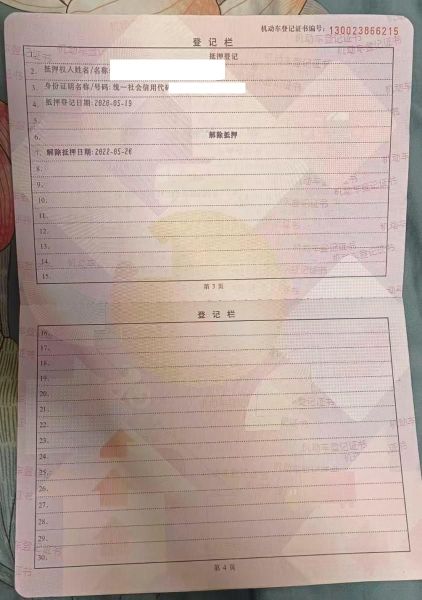 机动车登记证书编号：130023866215
登记栏
1. 抵押登记
2. 抵押权人姓名/名称:
3. 身份证明名称/号码:统一社会信用代码
4. 抵押登记日期:2020-05-19
5.
6. 解除抵押
7. 解除抵押日期:2022-05-26
8.
9.
10.
11.
12.
13.
14.
15.
第 3 页
登记栏
16.
17.
18.
19.
20.
21.
22.
23.
24.
25.
26.
27.
28.
29.
30.
第 4 页